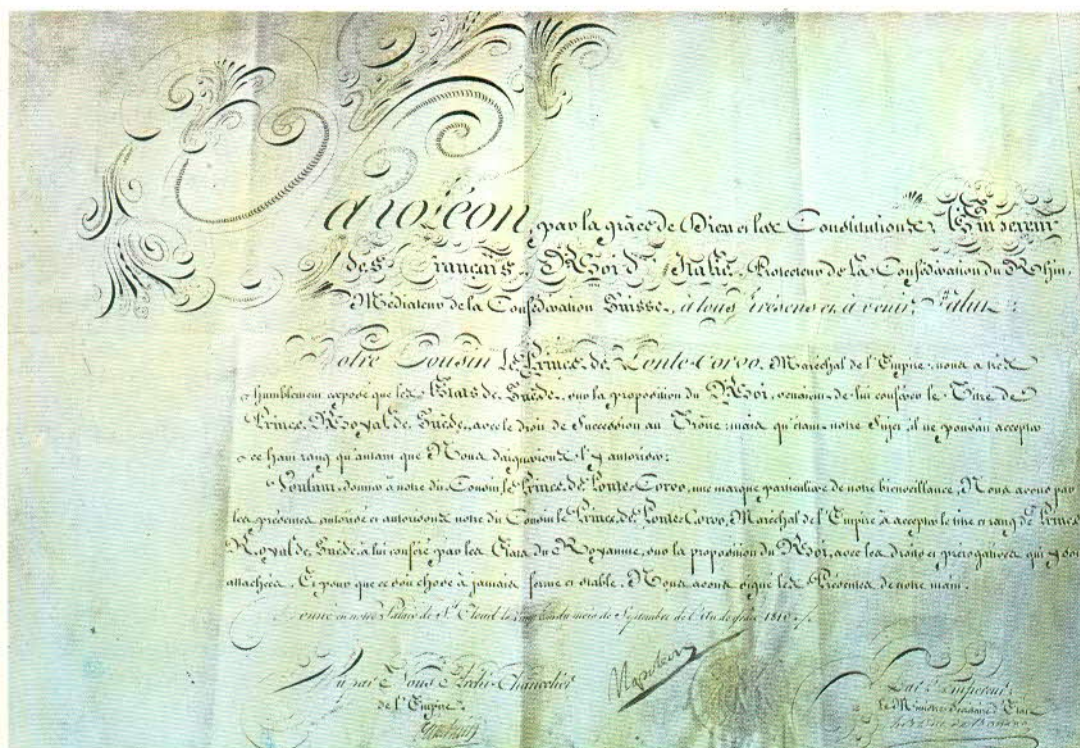 Napoléon, par la grâce de Dieu et les Constitutions, Empereur
des Français, Roi d'Italie, Protecteur de la Confédération du Rhin,
Médiateur de la Confédération Suisse, à tous présens et à venir, Salut:
Notre Cousin le Prince de Ponte-Corvo, Maréchal de l'Empire nous a très
humblement exposé que les Etats de Suède, sur la proposition du Roi, venaient de lui conférer le Titre de
Prince Royal de Suède, avec le droit de Succession au Trône: mais qu'étant notre Sujet il ne pouvait accepter
ce haut rang qu'autant que Nous daignerions l'y autoriser:
Voulant donner à notre dit Cousin, le Prince de Ponte-Corvo, une marque particulière de notre bienveillance, Nous avons par
les présentes autorisé et autorisons notre dit Cousin le Prince de Ponte-Corvo, Maréchal de l'Empire à accepter le titre et rang de Prince
Royal de Suède, à lui conféré par les Etats du Royaume, sur la proposition du Roi, avec les droits et prérogatives qui y sont
attachés. Et pour que ce soit chose à jamais ferme et stable, Nous avons signé les Présentes de notre main.
Donné en notre Palais de St Cloud le du mois de Septembre de l'An de grâce 1810
Napoleon
Vu par Nous Archi-Chancelier
de l'Empire
Par l'Empereur:
Le Ministre Secrétaire d'Etat